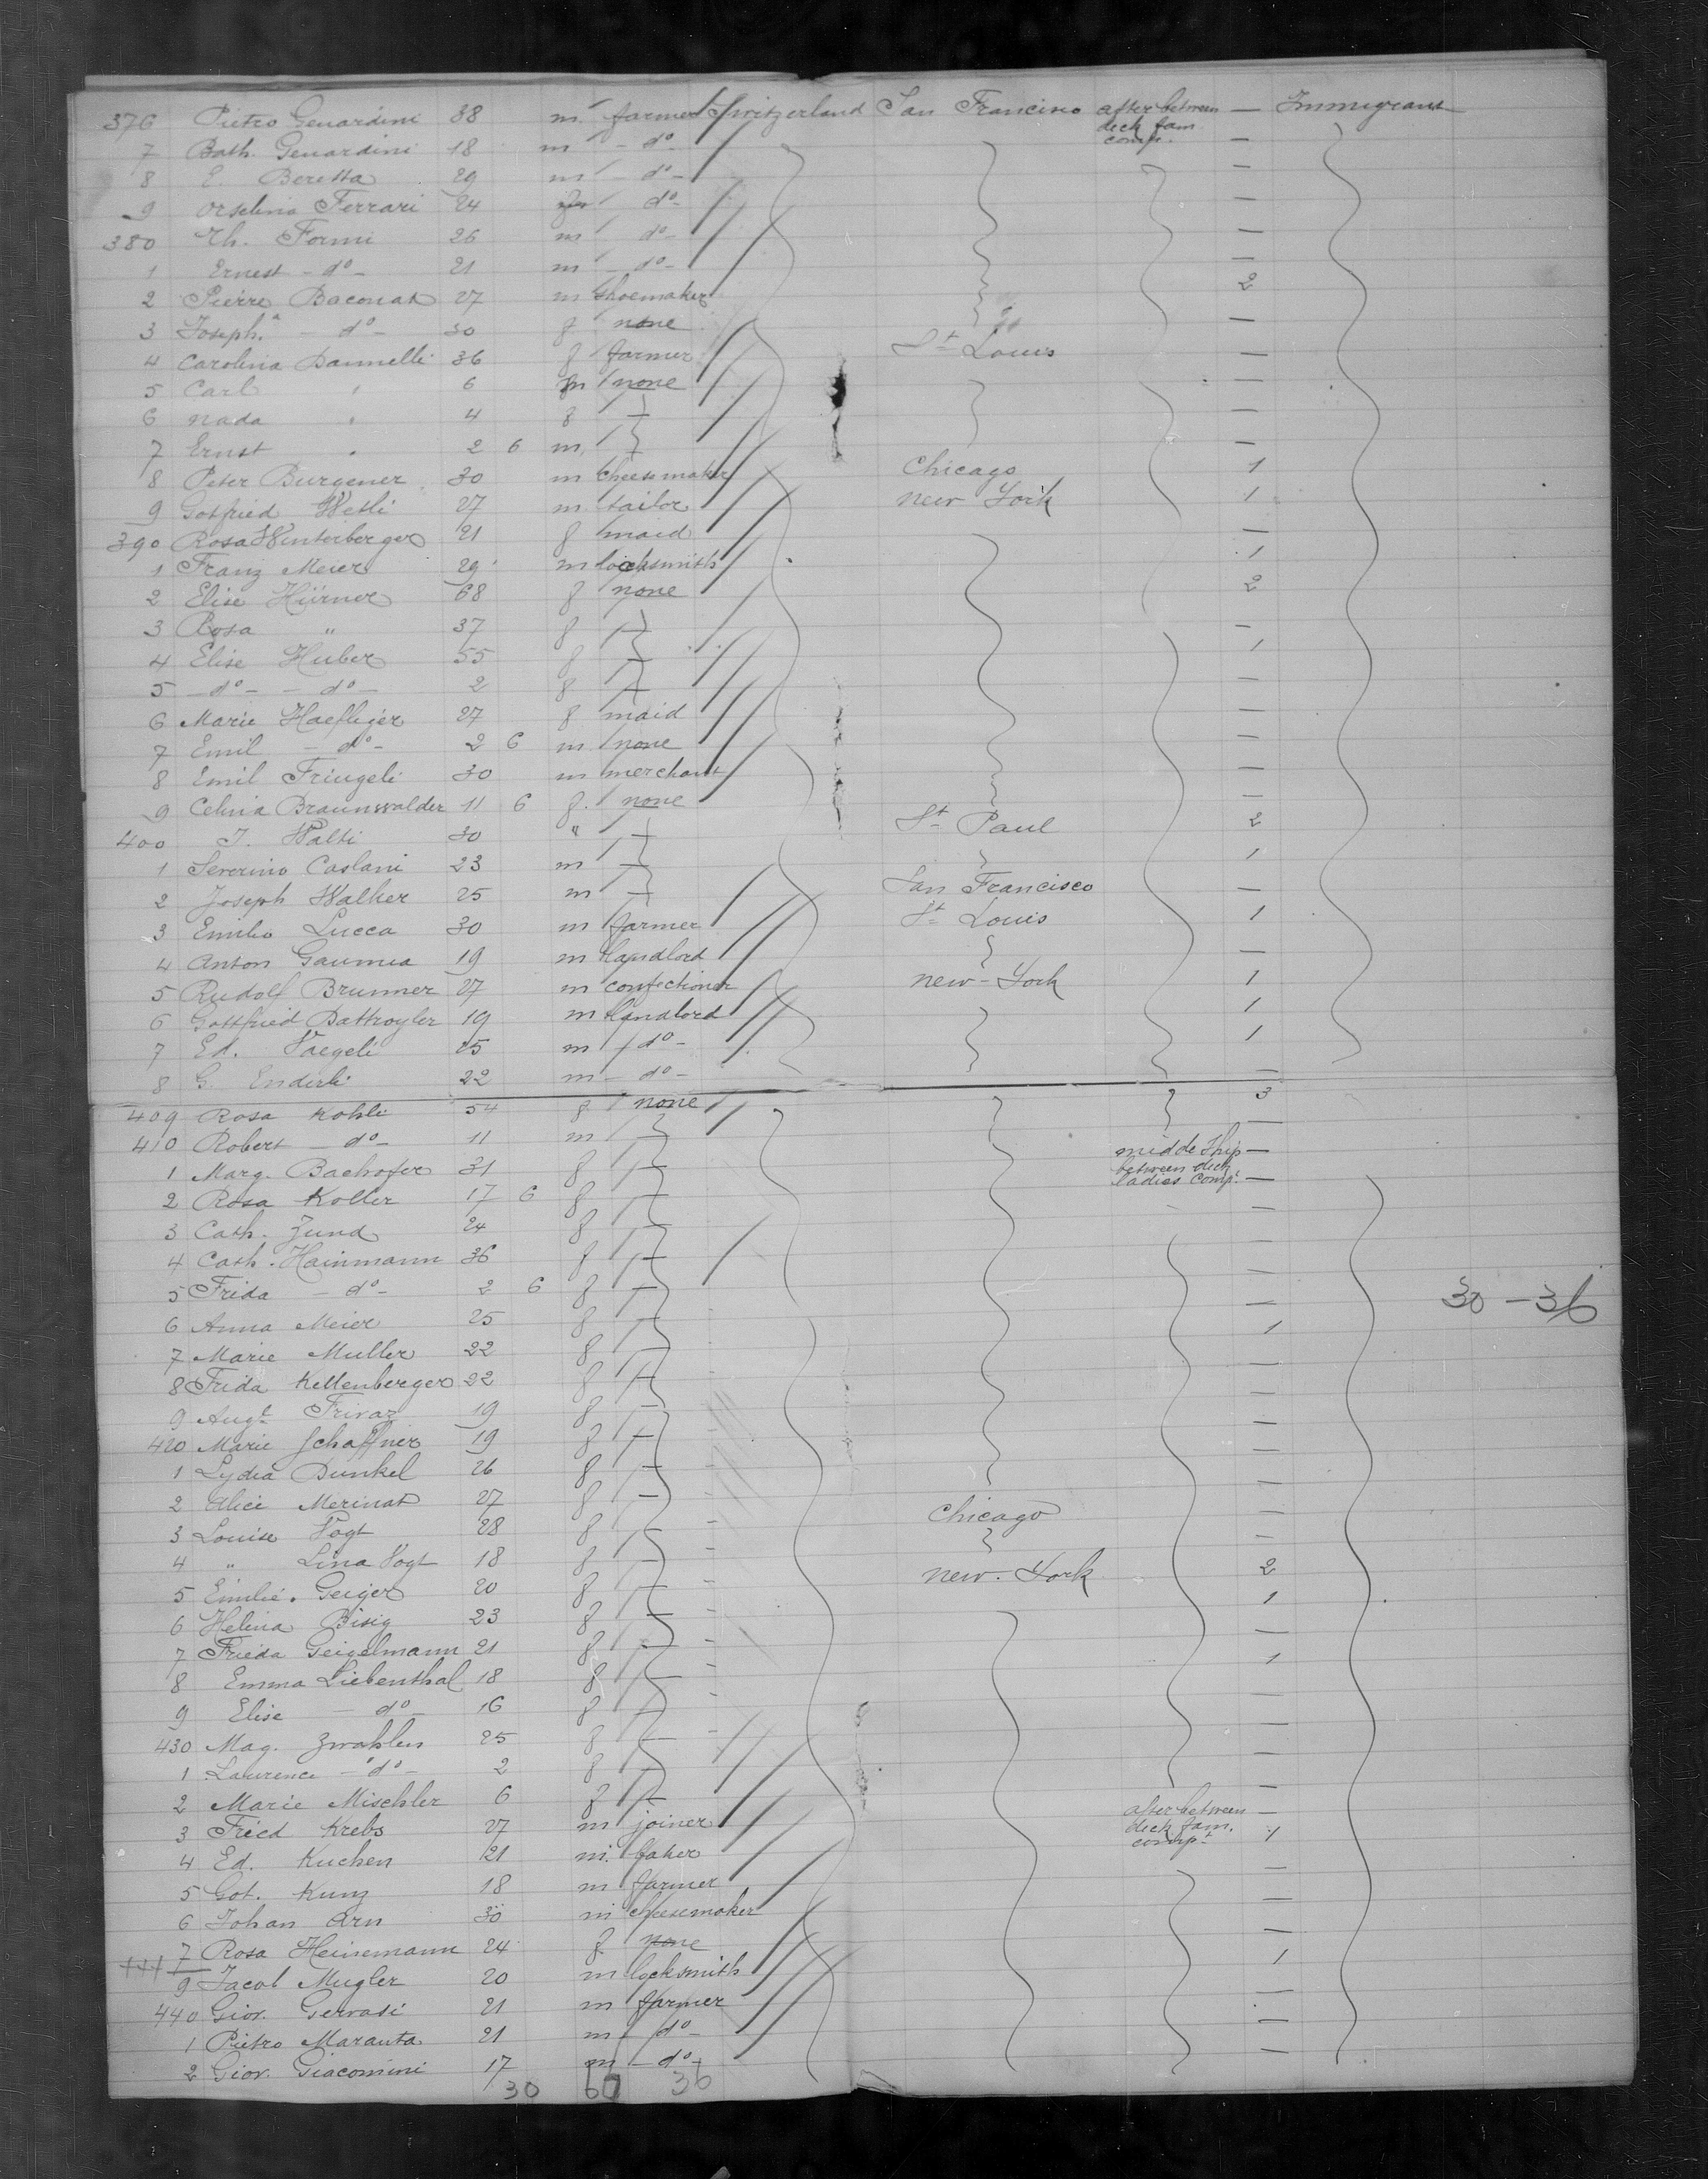 376 Pietro Genardini 38 m farmer Switzerland San Francisco after between deck fam. comp. — Immigrant
7 Bath. Genardini 18 m - do - —
8 E. Beretta 29 m - do - —
9 Orselina Ferrari 24 m do - —
380 Th. Formi 26 m do - —
1 Ernest - do - 21 m - do - —
2 Pierre Baconat 27 m shoemaker 2
3 Joseph.a do - 30 f none —
4 Carolina Dannelli 36 f farmer St Louis —
5 Carl " 6 m none —
6 Nada " 4 f —
7 Ernst " 2 6 m —
8 Peter Burgener 30 m cheesemaker Chicago 1
9 Gotfried Wetli 27 m tailor New York 1
390 Rosa Winterberger 21 f maid —
1 Franz Meier 29 m locksmith 1
2 Elise Hürner 68 f none 2
3 Rosa " 37 f —
4 Elise Huber 55 f 1
5 - do - - do - 2 f —
6 Marie Haefliger 27 f maid —
7 Emil - do - 2 6 m none —
8 Emil Fringeli 30 m merchant —
9 Celina Braunwalder 11 6 f. none —
400 J. Walti 30 " St Paul 2
1 Severino Caslani 23 m 1
2 Joseph Walker 25 m San Francisco —
3 Emilio Lucca 30 m farmer St Louis 1
4 Anton Gaumia 19 m landlord —
5 Rudolf Brunner 27 m confectioner New-York 1
6 Gottfried Dattroyler 19 m landlord 1
7 Ed. Vaegeli 25 m - do - 1
8 G. Enderli 22 m - do - —
409 Rosa Kohli 54 f none 3
410 Robert - do - 11 m —
1 Marg. Bachofer 31 f midde ship between deck ladies comp.t —
2 Rosa Koller 17 6 f —
3 Cath. Zund 24 f —
4 Cath. Hainmann 36 f —
5 Frida - do - 2 6 f — 30 - 36
6 Anna Meier 25 f 1
7 Marie Muller 22 f —
8 Frida Kellenberger 22 f —
9 Aug.t Frivaz 19 f —
420 Marie Schaffner 19 f —
1 Lydia Dunkel 26 f —
2 Alice Merinat 27 f —
3 Louise Vogt 28 f Chicago —
4 " Lina Vogt 18 f —
5 Emilie. Geiger 20 f New. York 2
6 Helina Bisig 23 f 1
7 Frieda Geigelmann 21 f —
8 Emma Liebenthal 18 f 1
9 Elise - do - 16 f —
430 Mag. Zwahlen 25 f —
1 Laurence - do - 2 f —
2 Marie Mischler 6 f —
3 Fried Krebs 27 m joiner after between deck fam. comp.t —
4 Ed. Kuchen 21 m. baker 1
5 Got. Kunz 18 m farmer —
6 Johan Arn 30 m cheesemaker —
7 Rosa Heinemann 24 f none —
9 Jacob Mugler 20 m locksmith 1
440 Giov. Gervasi 21 m farmer —
1 Pietro Maranta 21 m - do - —
2 Giov. Giacomini 17 m - do - —
30 60 36